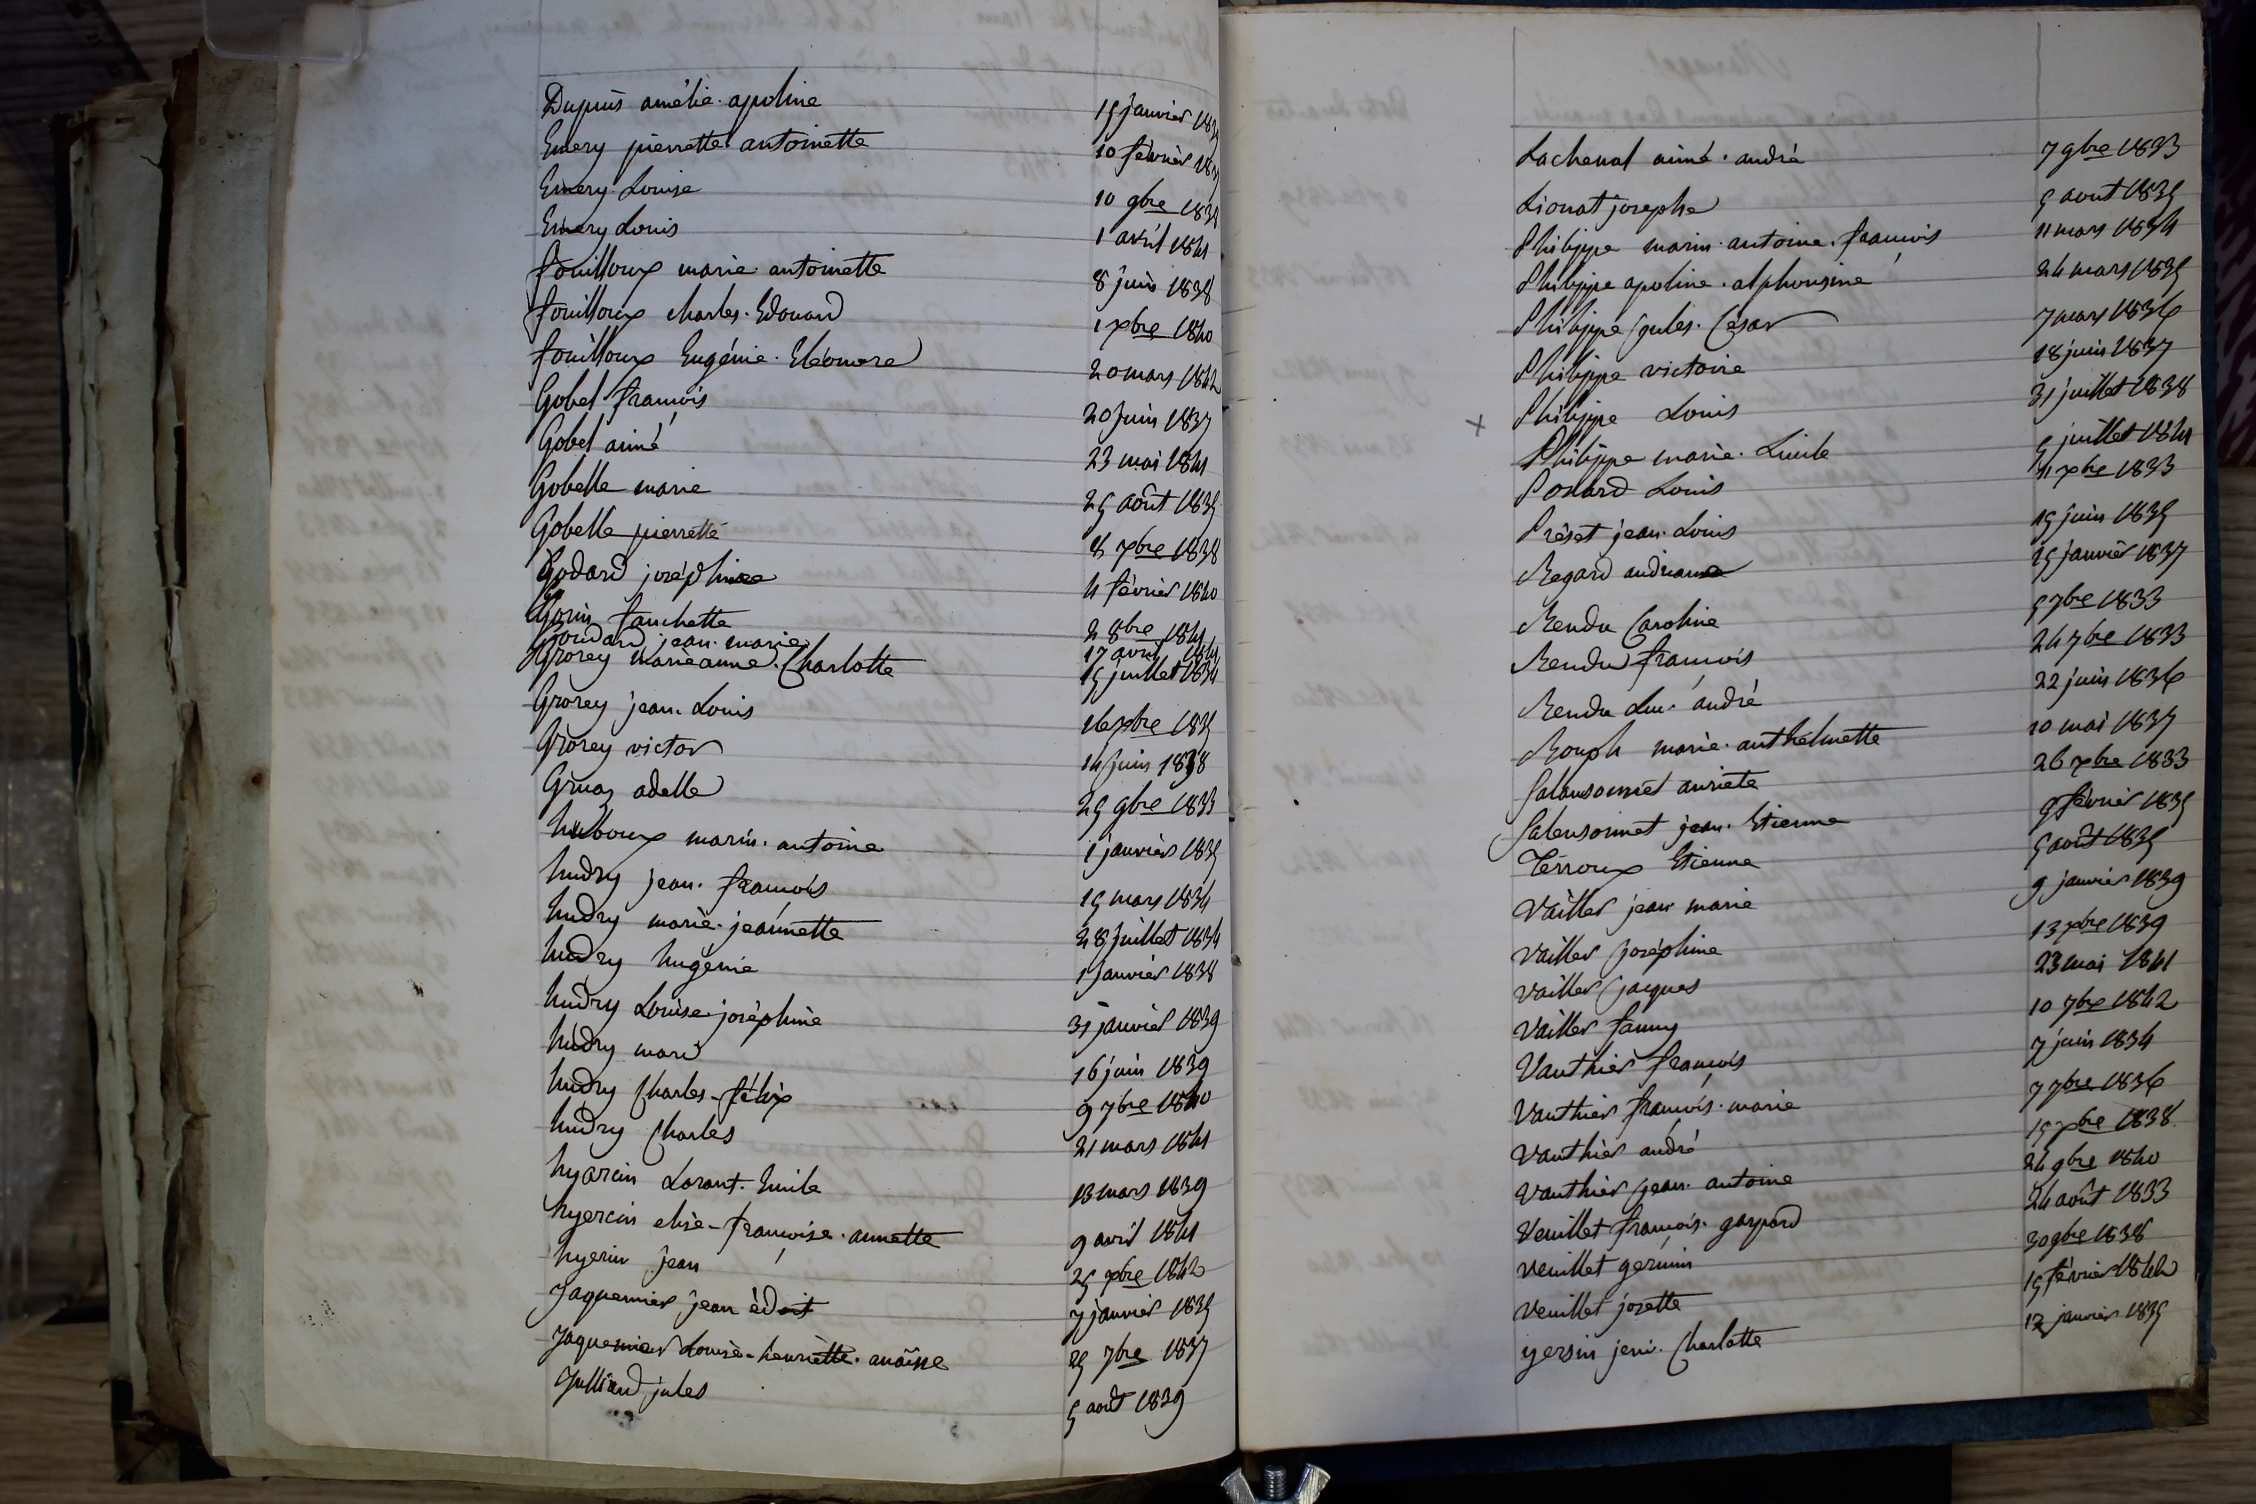 Dupuis amélie. apoline 15 janvier
Emery pierrette antoinette 10 février
Emery Louise 10 9bre 1838
Emery Louis 1 avril 1841
fouilloux marie antoinette 8 juin 1838
fouilloux charles. Edouard 1 xbre 1840
fouilloux Eugénie. Eléonore 20 mars 1842
Gobel françois 20 juin 1837
Gobel aimé 23 mai 1841
Gobelle marie 25 août 1835
Gobelle pierrette 8 xbre 1838
Godard joséphine 4 février 1840
Gorin fanchette 2 8bre 1841
Goudard jean. marie 17 avril 1841
Grorey marieanne. Charlotte 15 juillet 1834
Grorey jean. Louis 16 xbre 1835
Grorey victor 14 juin 1838
Gruaz adelle 25 9bre 1833
huboux marin. antoine 1 janvier 1835
hudry jean. françois 15 mars 1834
hudry marie. jeannette 28 juillet 1834
hudry hugénie 1 janvier 1838
hudry Louise joséphine 31 janvier 1839
hudry marie 16 juin 1839
hudry Charles-félix 9 7bre 1840
hudry Charles 21 mars 1841
hyarcin Lorant. Emile 13 mars 1839
hyercin elise-françoise. annette 9 avril 1841
hyerin jean 25 xbre 1842
Jaquemier jean 7 janvier 1835
Jaquemier Louise-henriette. 25 7bre 1837
Julliard jules 5 août 1839
Lachenal aimé. andré 7 9bre 1833
Lionat josephe 5 aout 1835
Philippe marin. antoine. françois 11 mars 1834
Philippe apoline. alphonsine 24 mars 1835
Philippe jules. César 7 mars 1836
Philippe victoire 18 juin 1837
x Philippe Louis 31 juillet 1838
Philippe marie. Emile 5 juillet 1841
Ponard Louis 11 xbre 1833
Préset jean. Louis 15 juin 1835
Regard andrienne 25 janvier 1837
Rendu Caroline 5 7bre 1833
Rendu françois 24 7bre 1833
Rendu Luc. andré 22 juin 1836
Rouph marie. anthelmette 10 mai 1837
Salansonnet auriete 26 xbre 1833
Salensonnet jean. Etienne 9 février 1835
Terroux Etienne 5 août 1835
Vailler jean marie 9 janvier 1839
Vailler joséphine 13 xbre 1839
Vailler jacques 23 mai 1841
Vailler fanny 10 7bre 1842
Vauthier françois 7 juin 1834
Vauthier françois. marie 7 7bre 1836
Vauthier andré 15 xbre 1838
Vauthier jean. antoine 24 9bre 1840
Veuillet françois. gaspard 24 août 1833
Veuillet germin 30 9bre 1838
Veuillet josette 15 février 1842
yersin jeni. Charlotte 12 janvier 1835